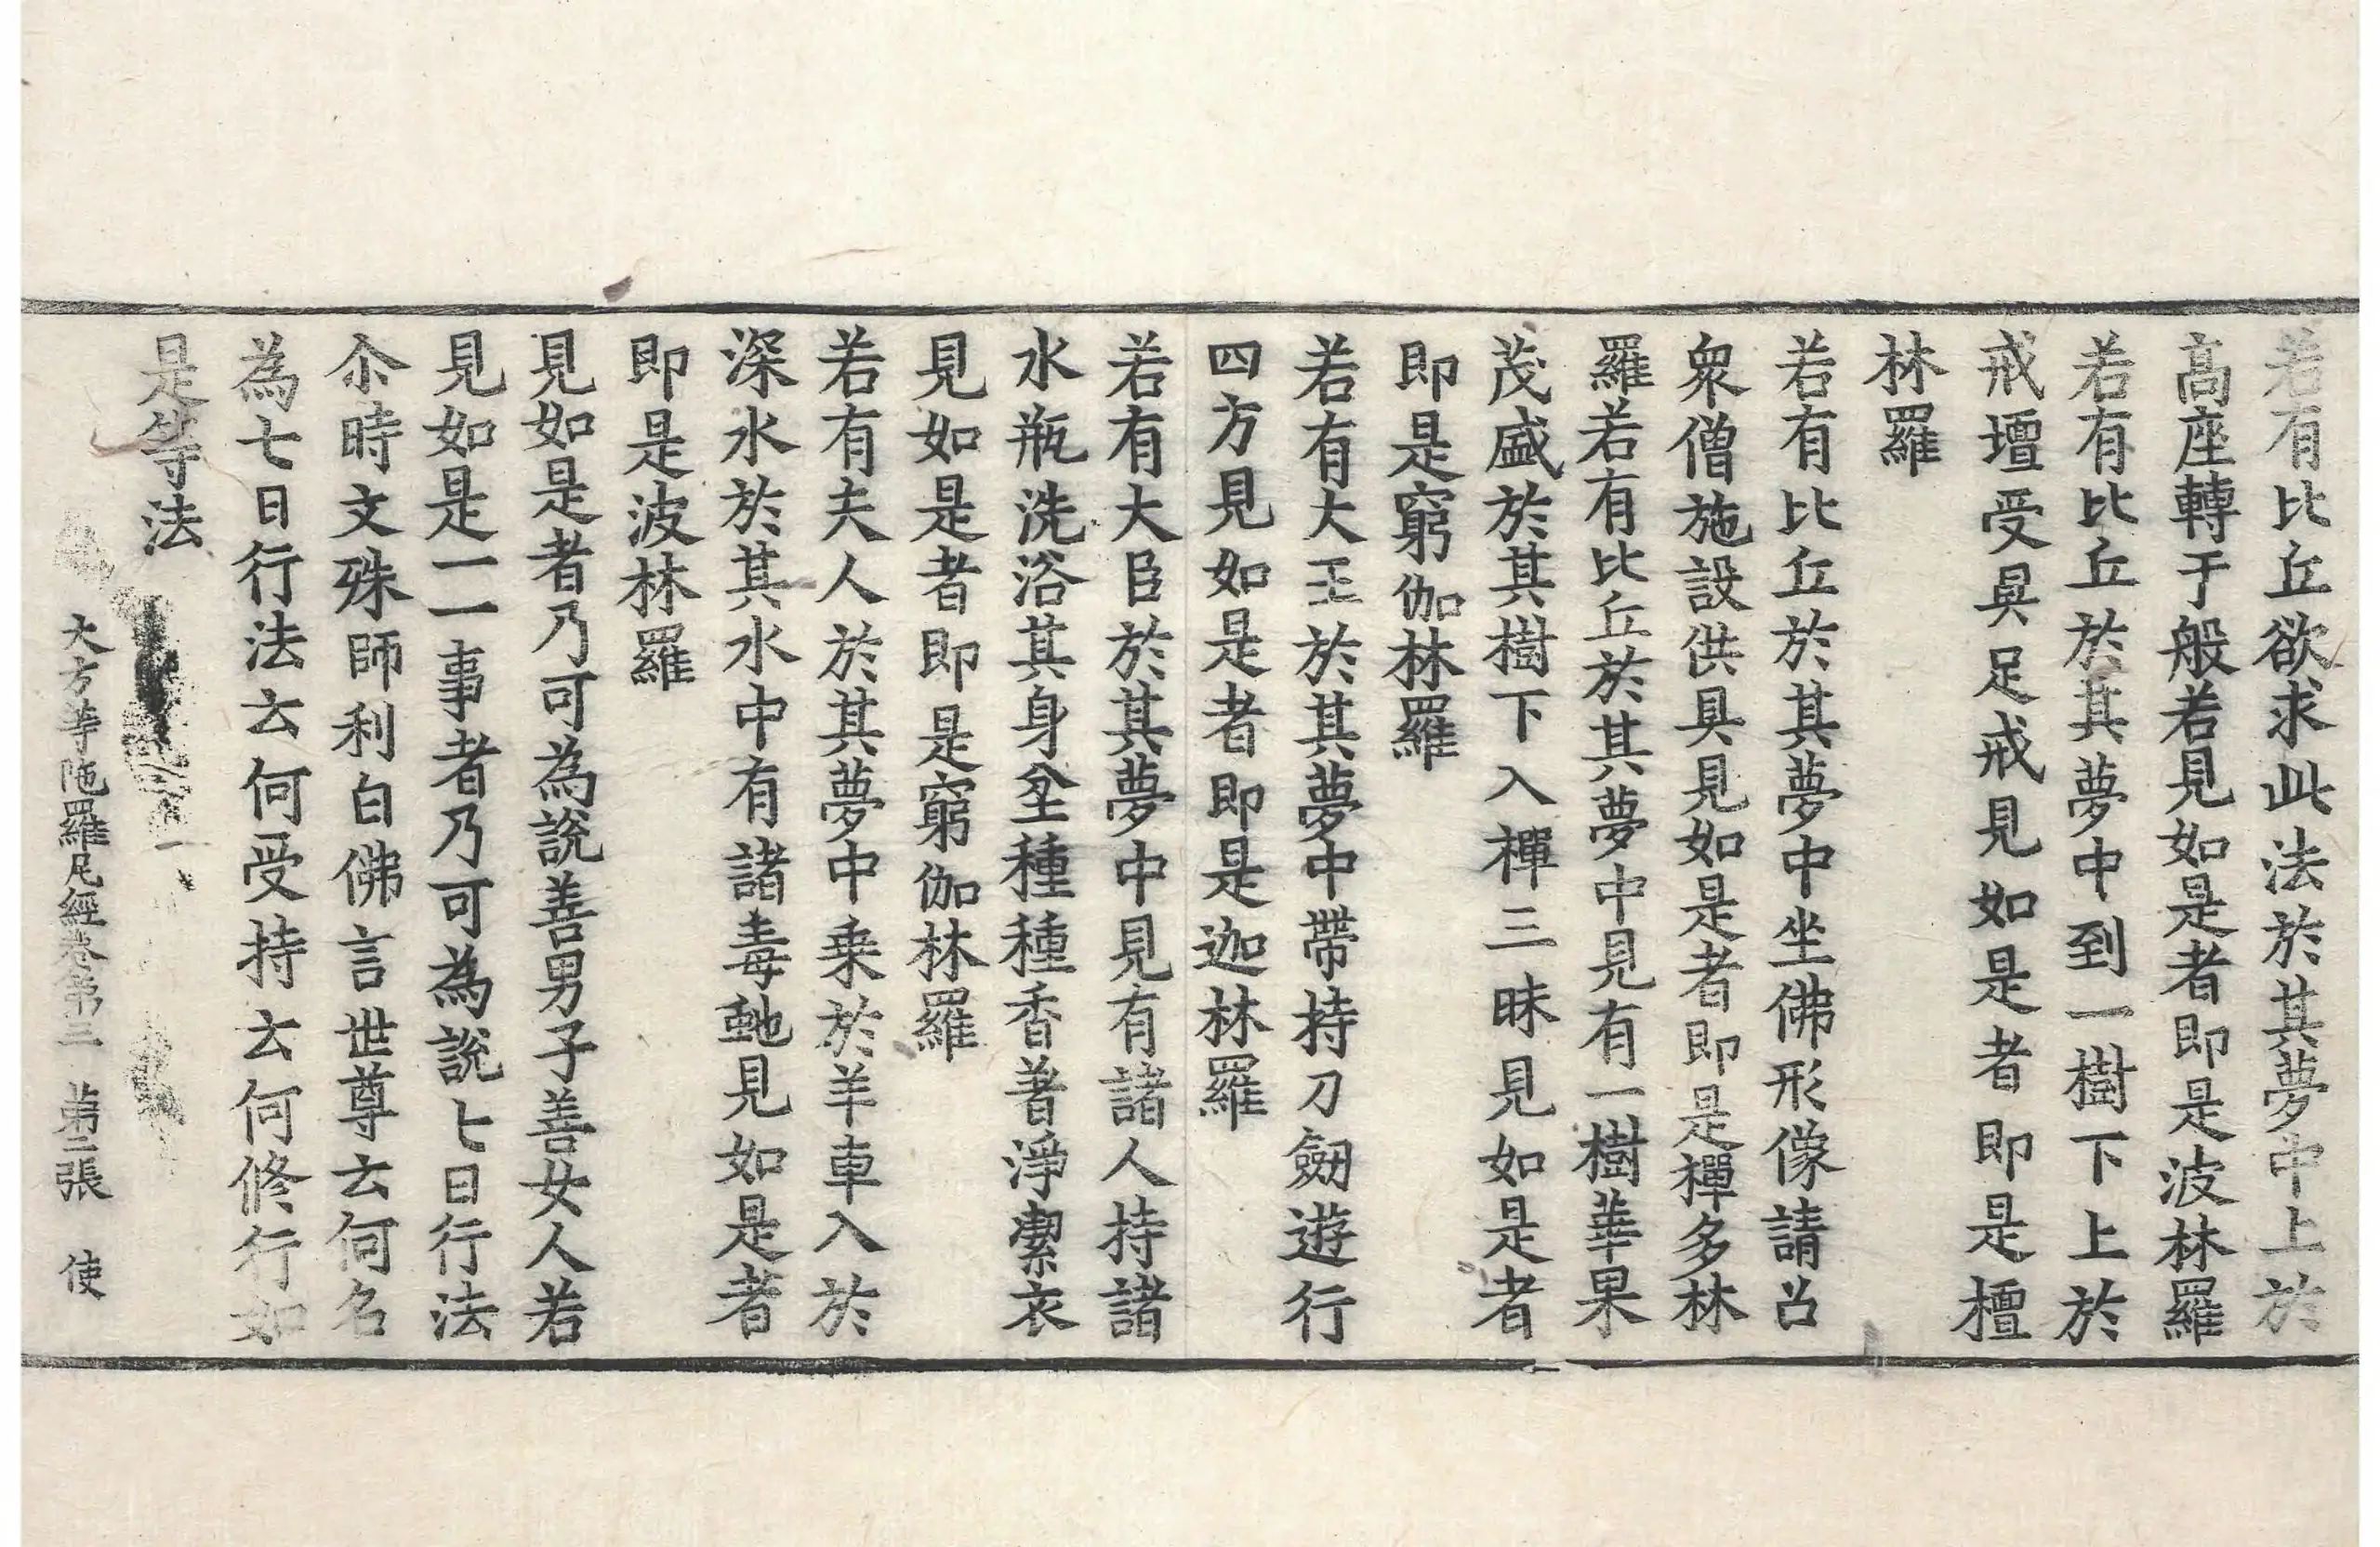 若有比丘欲求此法於其夢中上於
髙座轉于般若見如是者即是波林羅
若有比丘於其夢中到一樹下上於
戒壇受具足戒見如是者即是檀
林羅
若有比丘於其夢中坐佛形像請召
衆僧施設供具見如是者即是禪多林
羅若有比丘於其夢中見有一樹華果
茂盛於其樹下入禪三昧見如是者
即是窮伽林羅
若有大王於其夢中帶持刀劒遊行
四方見如是者即是迦林羅
若有大臣於其夢中見有諸人持諸
水瓶洗浴其身坌種種香著淨潔衣
見如是者即是窮伽林羅
若有夫人於其夢中乗於羊車入於
深水於其水中有諸毒虵見如是者
即是波林羅
見如是者乃可為說善男子善女人若
見如是一一事者乃可為說七日行法
尒時文殊師利白佛言世尊云何名
為七日行法云何受持云何修行如
是等法
大方等陁羅尼經卷第三　第二張　使